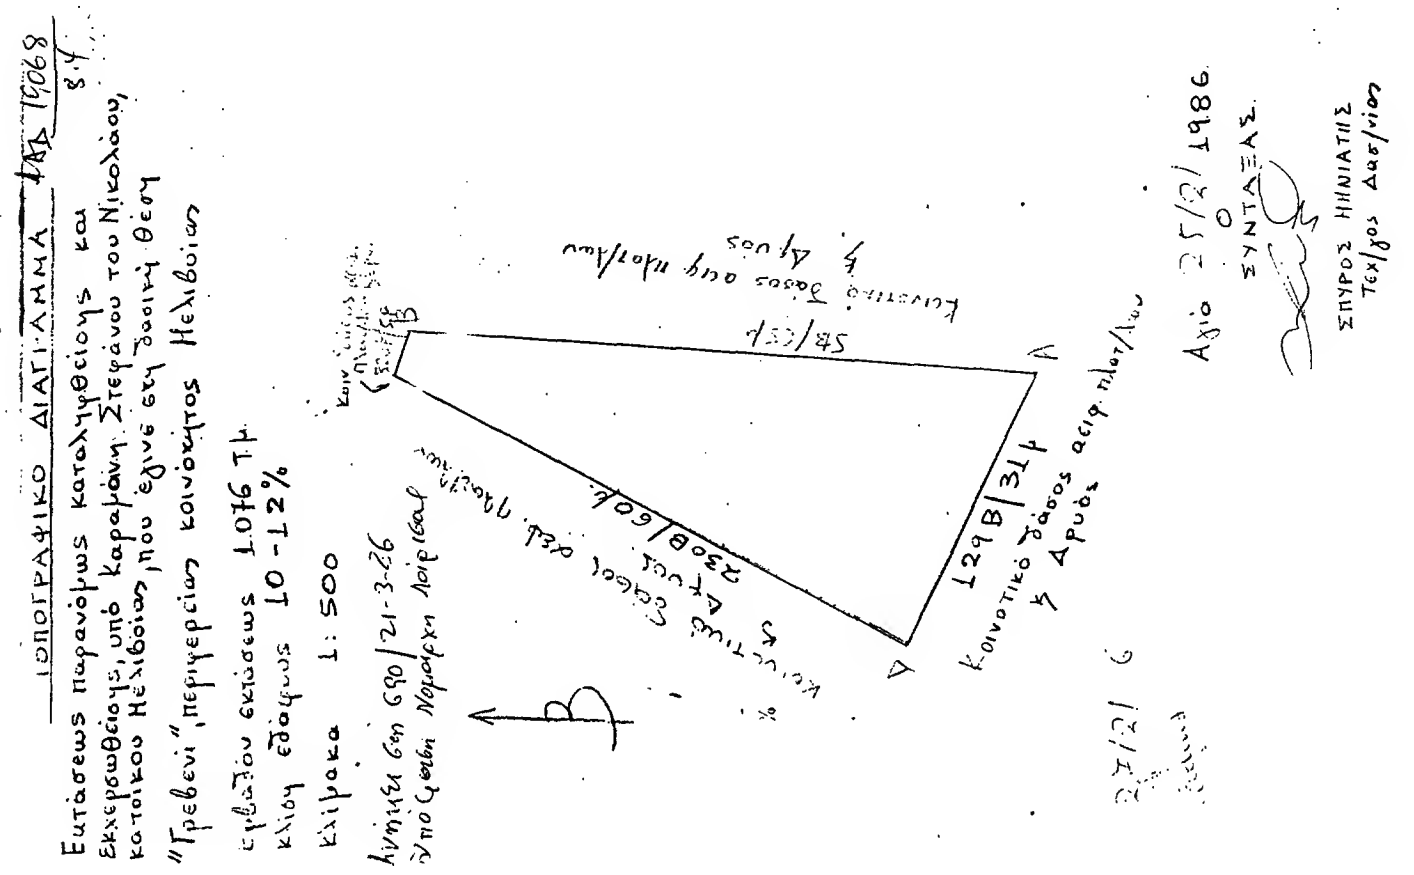 ΤΟΠΟΓΡΑΦΙΚΟ ΔΙΑΓΡΑΜΜΑ ΔΑΔ 19068
8.4
Εκτάσεως παρανόμως καταληφθείσης και
εκχερσωθείσης, υπό Καραμάνη Στεφάνου του Νικολάου,
κατοίκου Μελιβοίας, που έγινε στη δασική θέση
"Γρεβενί", περιφερείας κοινότητος Μελιβοίας
εμβαδού εκτάσεως 1.076 τ.μ.
κλίση εδάφους 10-12%
κλίμακα 1:500
690/21-3-86
απόφαση Νομάρχη Λάρισας
Β
Κοιν
Β
Γ
Κοινοτικό δάσος αειφ. πλατ/λων
ξ Δρυός
5Β/65μ
Α
230Β/60μ.
Κοινοτικό δάσος αειφ. πλατ/λων
ξ Δρυός
129Β/31μ
Κοινοτικό δάσος αειφ. πλατ/λων
ξ Δρυός
Δ
Αγιά 25/2/1986
Ο
ΣΥΝΤΑΞΑΣ
ΣΠΥΡΟΣ ΜΗΝΙΑΤΗΣ
Τεχ/γος Δασ/νίας
27/2/6